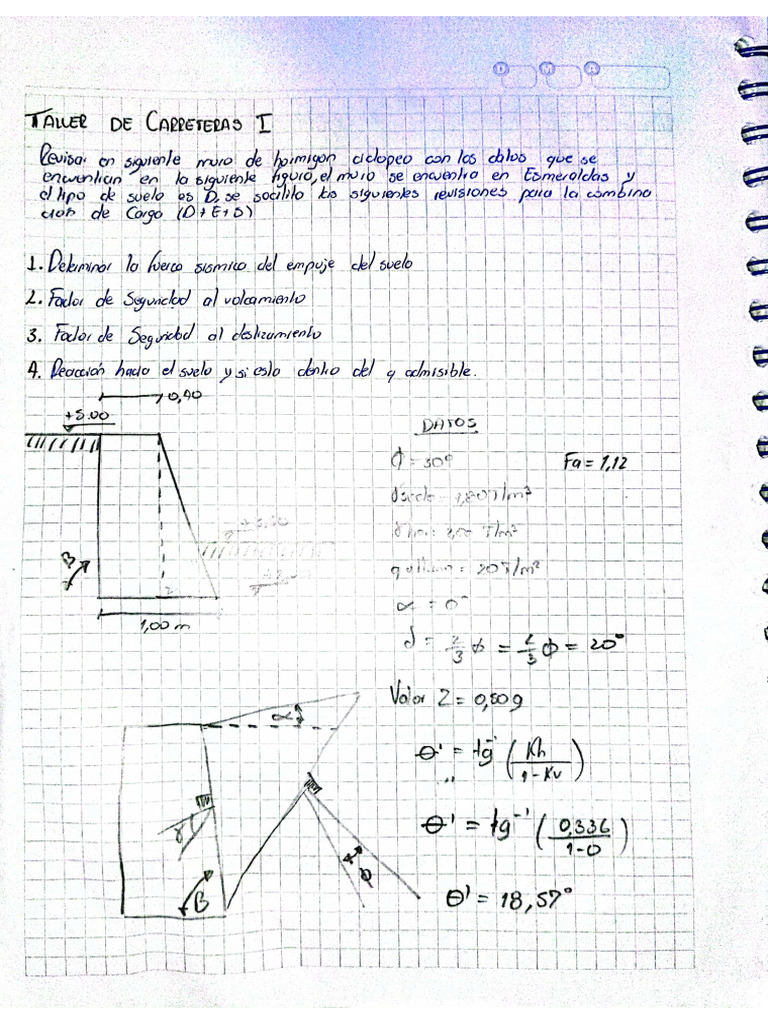 TALLER DE CARRETERAS I
Revisar en siguiente muro de hormigon ciclopeo con los datos que se
encuentran en la siguiente figura, el muro se encuentra en Esmeraldas y
el tipo de suelo es D, se socilita las siguientes revisiones para la combina
cion de Carga (D+E+S)
1. Determinar la fuerza sismica del empuje del suelo
2. Factor de Seguridad al volcamiento
3. Factor de Seguridad al deslizamiento
4. Reacción hacia el suelo y si esta dentro del q admisible.
0,40
+5.00
DATOS
ϕ = 30°
Fa = 1,12
γsuelo = 1,80T/m³
T/m³
= 20T/m²
α = 0°
δ = 2/3 ϕ = 2/3 ϕ = 20°
B
1,00 m
Valor Z = 0,50g
α
θ' = tg⁻¹ (Kh / 1-Kv)
θ' = tg⁻¹ (0,336 / 1-0)
γ
ϕ
B
θ' = 18,57°